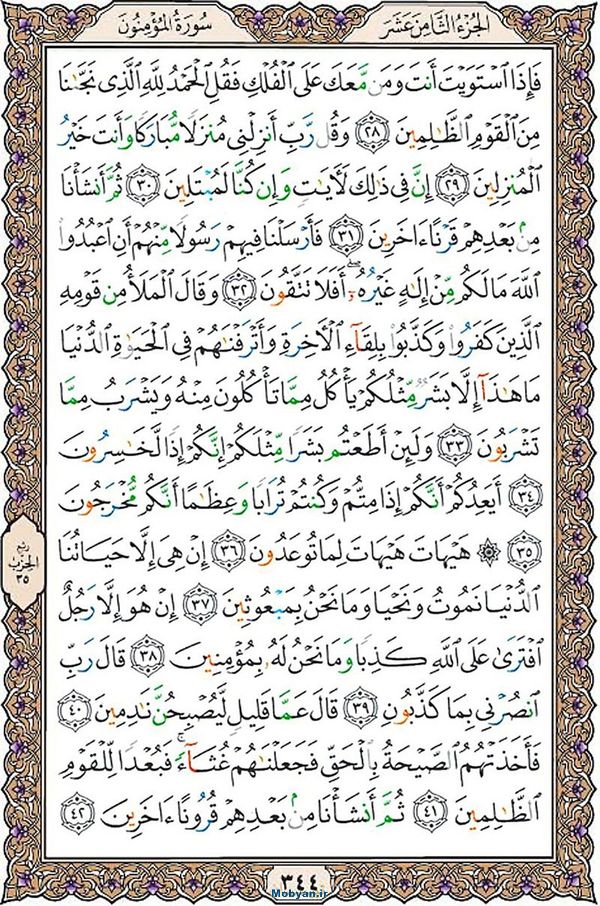 الجُزءُ الثَّامِنَ عَشَرَ
سُورَةُ المُؤْمِنُونَ
فَإِذَا ٱسْتَوَيْتَ أَنتَ وَمَن مَّعَكَ عَلَى ٱلْفُلْكِ فَقُلِ ٱلْحَمْدُ لِلَّهِ ٱلَّذِى نَجَّىٰنَا
مِنَ ٱلْقَوْمِ ٱلظَّٰلِمِينَ ٢٨ وَقُل رَّبِّ أَنزِلْنِى مُنزَلًا مُّبَارَكًا وَأَنتَ خَيْرُ
ٱلْمُنزِلِينَ ٢٩ إِنَّ فِى ذَٰلِكَ لَءَايَٰتٍ وَإِن كُنَّا لَمُبْتَلِينَ ٣٠ ثُمَّ أَنشَأْنَا
مِنۢ بَعْدِهِمْ قَرْنًا ءَاخَرِينَ ٣١ فَأَرْسَلْنَا فِيهِمْ رَسُولًا مِّنْهُمْ أَنِ ٱعْبُدُوا۟
ٱللَّهَ مَا لَكُم مِّنْ إِلَٰهٍ غَيْرُهُۥٓ ۖ أَفَلَا تَتَّقُونَ ٣٢ وَقَالَ ٱلْمَلَأُ مِن قَوْمِهِ
ٱلَّذِينَ كَفَرُوا۟ وَكَذَّبُوا۟ بِلِقَآءِ ٱلْءَاخِرَةِ وَأَتْرَفْنَٰهُمْ فِى ٱلْحَيَوٰةِ ٱلدُّنْيَا
مَا هَٰذَآ إِلَّا بَشَرٌ مِّثْلُكُمْ يَأْكُلُ مِمَّا تَأْكُلُونَ مِنْهُ وَيَشْرَبُ مِمَّا
تَشْرَبُونَ ٣٣ وَلَئِنْ أَطَعْتُم بَشَرًا مِّثْلَكُمْ إِنَّكُمْ إِذًا لَّخَٰسِرُونَ
٣٤ أَيَعِدُكُمْ أَنَّكُمْ إِذَا مِتُّمْ وَكُنتُمْ تُرَابًا وَعِظَٰمًا أَنَّكُم مُّخْرَجُونَ
٣٥ ۞ هَيْهَاتَ هَيْهَاتَ لِمَا تُوعَدُونَ ٣٦ إِنْ هِىَ إِلَّا حَيَاتُنَا
ٱلدُّنْيَا نَمُوتُ وَنَحْيَا وَمَا نَحْنُ بِمَبْعُوثِينَ ٣٧ إِنْ هُوَ إِلَّا رَجُلٌ
ٱفْتَرَىٰ عَلَى ٱللَّهِ كَذِبًا وَمَا نَحْنُ لَهُۥ بِمُؤْمِنِينَ ٣٨ قَالَ رَبِّ
ٱنصُرْنِى بِمَا كَذَّبُونِ ٣٩ قَالَ عَمَّا قَلِيلٍ لَّيُصْبِحُنَّ نَٰدِمِينَ ٤٠
فَأَخَذَتْهُمُ ٱلصَّيْحَةُ بِٱلْحَقِّ فَجَعَلْنَٰهُمْ غُثَآءً ۚ فَبُعْدًا لِّلْقَوْمِ
ٱلظَّٰلِمِينَ ٤١ ثُمَّ أَنشَأْنَا مِنۢ بَعْدِهِمْ قُرُونًا ءَاخَرِينَ ٤٢
ربع
الحزب
٣٥
٣٤٤
Mobyan.ir